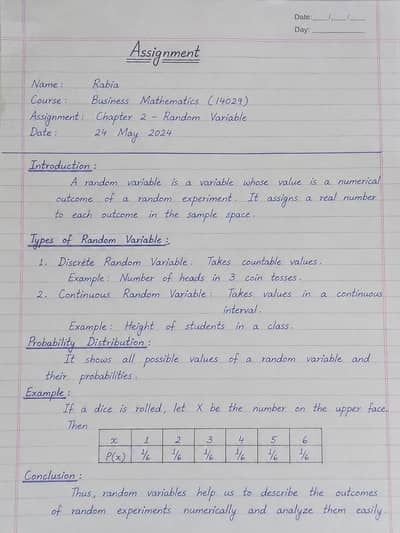 Date:____/____/____
Day: ______________
Assignment
Name : Rabia
Course : Business Mathematics (14029)
Assignment : Chapter 2 - Random Variable
Date : 24 May 2024
Introduction :
A random variable is a variable whose value is a numerical
outcome of a random experiment. It assigns a real number
to each outcome in the sample space.
Types of Random Variable :
1. Discrete Random Variable : Takes countable values.
Example : Number of heads in 3 coin tosses.
2. Continuous Random Variable : Takes values in a continuous
interval.
Example : Height of students in a class.
Probability Distribution :
It shows all possible values of a random variable and
their probabilities.
Example :
If a dice is rolled, let X be the number on the upper face.
Then
x 1 2 3 4 5 6
P(x) 1/6 1/6 1/6 1/6 1/6 1/6
Conclusion :
Thus, random variables help us to describe the outcomes
of random experiments numerically and analyze them easily.